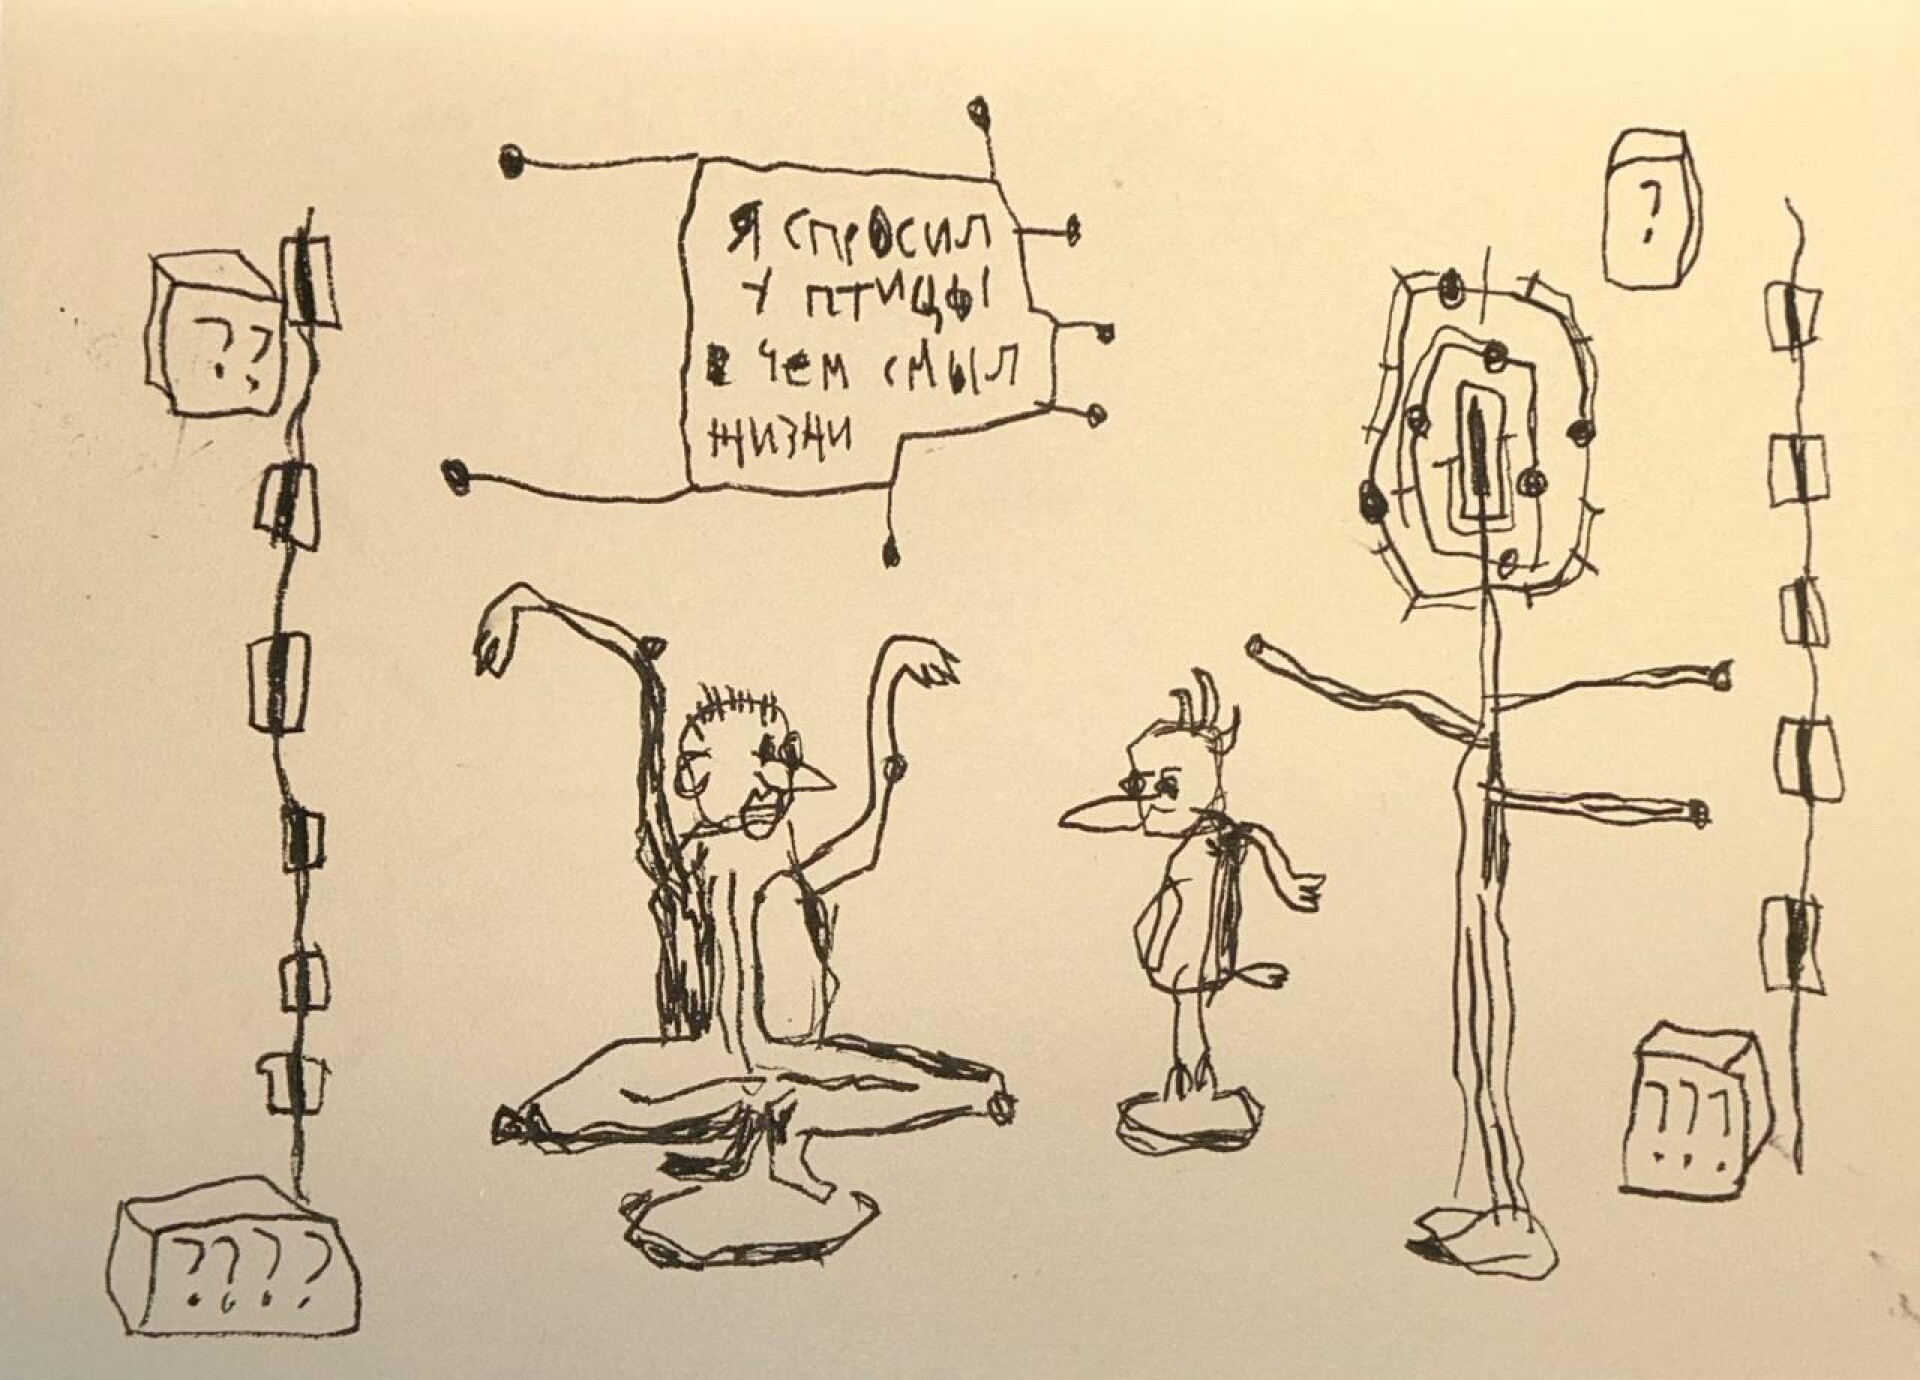 ??
?
Я СПРОСИЛ
У ПТИЦЫ
В ЧЕМ СМЫЛ
ЖИЗНИ
????
???